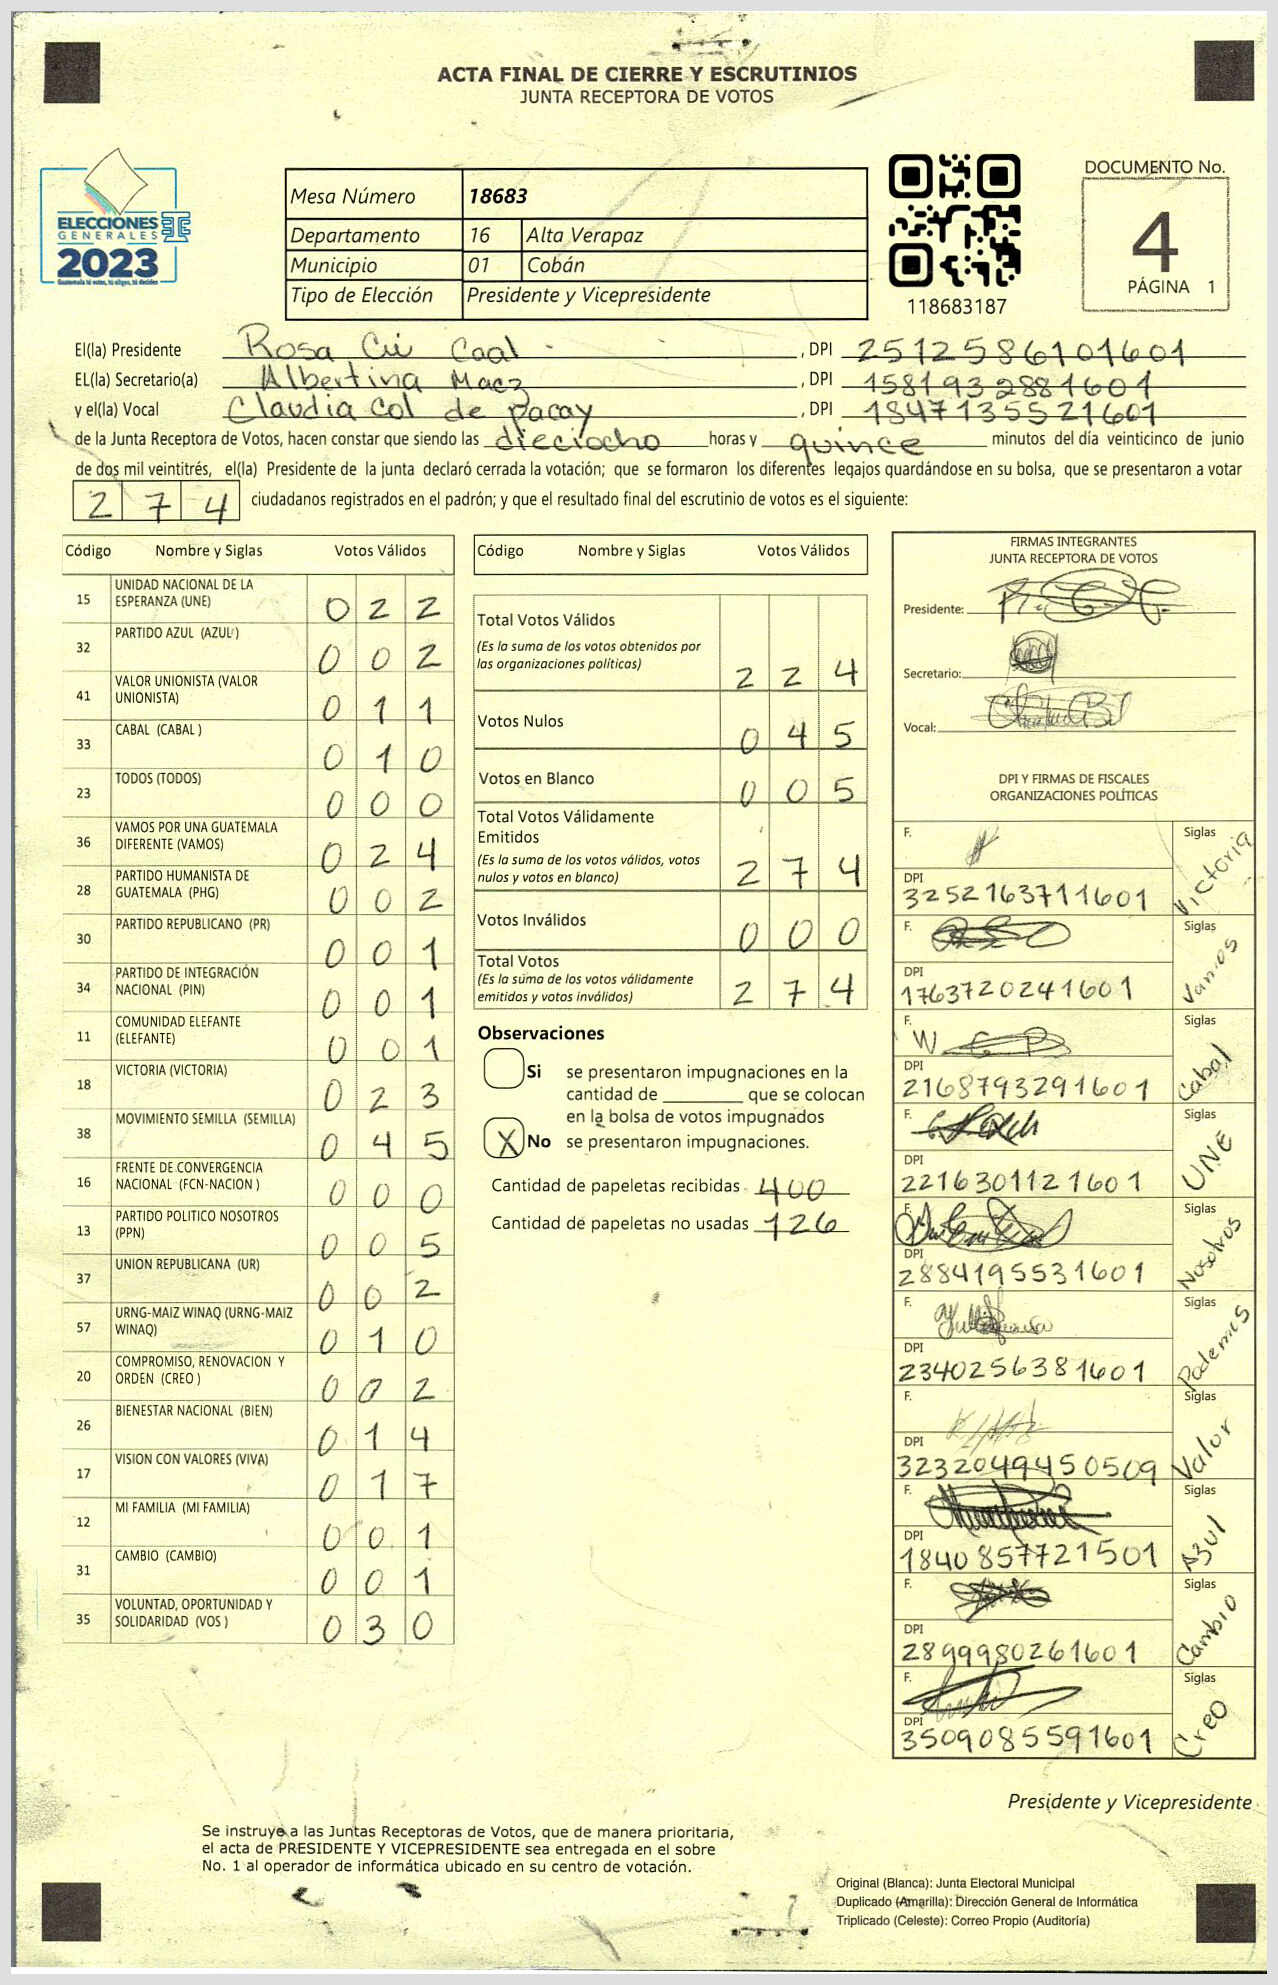 ACTA FINAL DE CIERRE Y ESCRUTINIOS
JUNTA RECEPTORA DE VOTOS
ELECCIONES
GENERALES
2023
Guatemala tú votas, tú eliges, tú decides
Mesa Número 18683
Departamento 16 Alta Verapaz
Municipio 01 Cobán
Tipo de Elección Presidente y Vicepresidente
118683187
DOCUMENTO No.
4
PÁGINA 1
El(la) Presidente Rosa Cú Caal , DPI 2512586101601
EL(la) Secretario(a) Albertina Maez , DPI 1581932881601
y el(la) Vocal Claudia Col de Pacay , DPI 1847135521601
de la Junta Receptora de Votos, hacen constar que siendo las dieciocho horas y quince minutos del día veinticinco de junio
de dos mil veintitrés, el(la) Presidente de la junta declaró cerrada la votación; que se formaron los diferentes legajos guardándose en su bolsa, que se presentaron a votar
274 ciudadanos registrados en el padrón; y que el resultado final del escrutinio de votos es el siguiente:
Código Nombre y Siglas Votos Válidos
15 UNIDAD NACIONAL DE LA ESPERANZA (UNE) 022
32 PARTIDO AZUL (AZUL) 002
41 VALOR UNIONISTA (VALOR UNIONISTA) 011
33 CABAL (CABAL ) 010
23 TODOS (TODOS) 000
36 VAMOS POR UNA GUATEMALA DIFERENTE (VAMOS) 024
28 PARTIDO HUMANISTA DE GUATEMALA (PHG) 002
30 PARTIDO REPUBLICANO (PR) 001
34 PARTIDO DE INTEGRACIÓN NACIONAL (PIN) 001
11 COMUNIDAD ELEFANTE (ELEFANTE) 001
18 VICTORIA (VICTORIA) 023
38 MOVIMIENTO SEMILLA (SEMILLA) 045
16 FRENTE DE CONVERGENCIA NACIONAL (FCN-NACION ) 000
13 PARTIDO POLITICO NOSOTROS (PPN) 005
37 UNION REPUBLICANA (UR) 002
57 URNG-MAIZ WINAQ (URNG-MAIZ WINAQ) 010
20 COMPROMISO, RENOVACION Y ORDEN (CREO ) 002
26 BIENESTAR NACIONAL (BIEN) 014
17 VISION CON VALORES (VIVA) 017
12 MI FAMILIA (MI FAMILIA) 001
31 CAMBIO (CAMBIO) 001
35 VOLUNTAD, OPORTUNIDAD Y SOLIDARIDAD (VOS ) 030
Código Nombre y Siglas Votos Válidos
Total Votos Válidos
(Es la suma de los votos obtenidos por
las organizaciones políticas) 224
Votos Nulos 045
Votos en Blanco 005
Total Votos Válidamente
Emitidos
(Es la suma de los votos válidos, votos
nulos y votos en blanco) 274
Votos Inválidos 000
Total Votos
(Es la suma de los votos válidamente
emitidos y votos inválidos) 274
Observaciones
Si se presentaron impugnaciones en la
cantidad de ________ que se colocan
en la bolsa de votos impugnados
X No se presentaron impugnaciones.
Cantidad de papeletas recibidas 400
Cantidad de papeletas no usadas 126
FIRMAS INTEGRANTES
JUNTA RECEPTORA DE VOTOS
Presidente:
Secretario:
Vocal:
DPI Y FIRMAS DE FISCALES
ORGANIZACIONES POLÍTICAS
F. Siglas Victoria
DPI 3252163711601
F. Siglas Vamos
DPI 1763720241601
F. Siglas Cabal
DPI 2168793291601
F. Siglas UNE
DPI 2216301121601
F. Siglas Nosotros
DPI 2884195531601
F. Siglas Podemos
DPI 2340256381601
F. Siglas Valor
DPI 3232049450509
F. Siglas Azul
DPI 1840857721501
F. Siglas Cambio
DPI 2899980261601
F. Siglas Creo
DPI 3509085591601
Presidente y Vicepresidente
Se instruye a las Juntas Receptoras de Votos, que de manera prioritaria,
el acta de PRESIDENTE Y VICEPRESIDENTE sea entregada en el sobre
No. 1 al operador de informática ubicado en su centro de votación.
Original (Blanca): Junta Electoral Municipal
Duplicado (Amarilla): Dirección General de Informática
Triplicado (Celeste): Correo Propio (Auditoría)